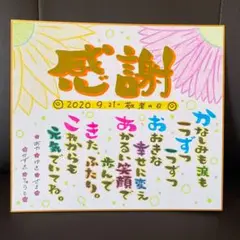 感謝
2020.9.21. 敬老の日
かなしみも涙も
一つずつ一つずつ
おおきな
幸せに変え
あかるい笑顔で
歩んで
きたふたり。
これからも
元気でいてね。